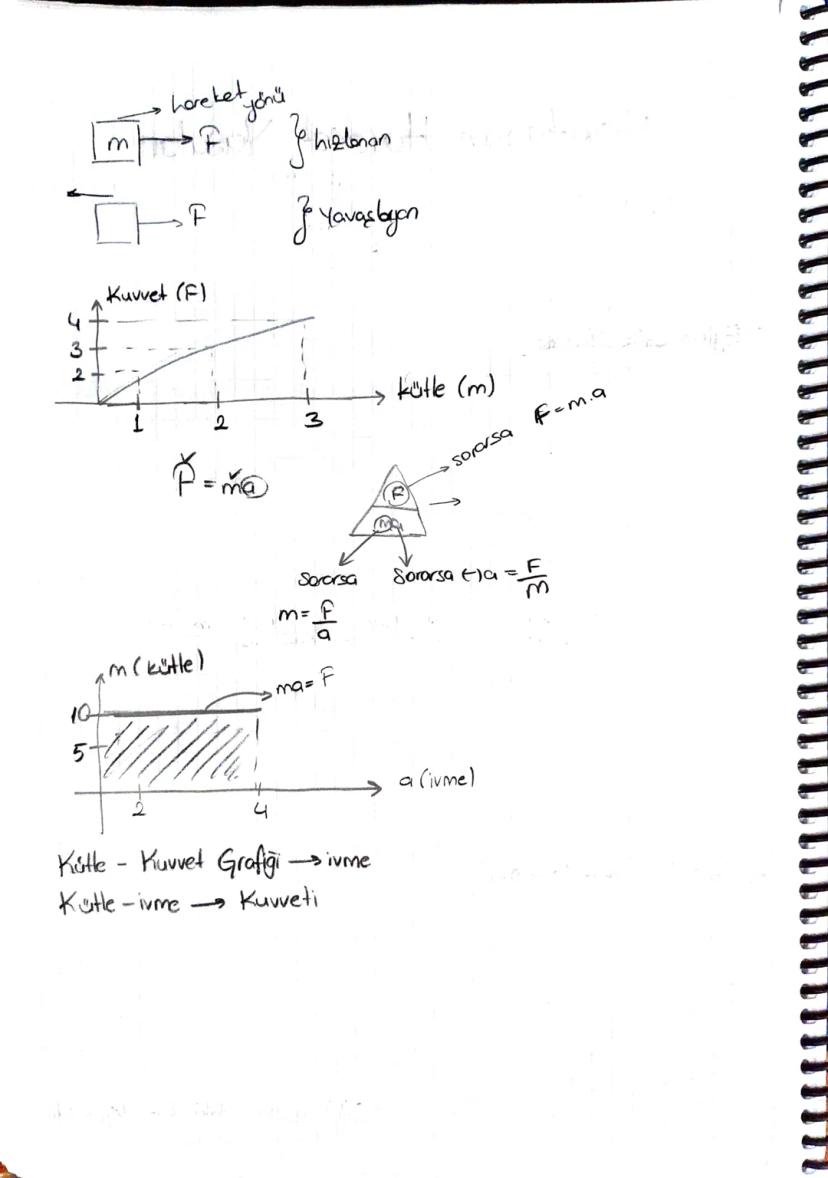 hareket yönü
m F } hızlanan
F } Yavaşlayan
Kuvvet (F)
4
3
2
1 2 3
kütle (m)
F = ma
F
ma
sorarsa F = m.a
sorarsa
m = F/a
Sorarsa (-) a = F/m
m (kütle)
ma = F
10
5
2 4
a (ivme)
Kütle - Kuvvet Grafiği → ivme
Kütle - ivme → Kuvveti